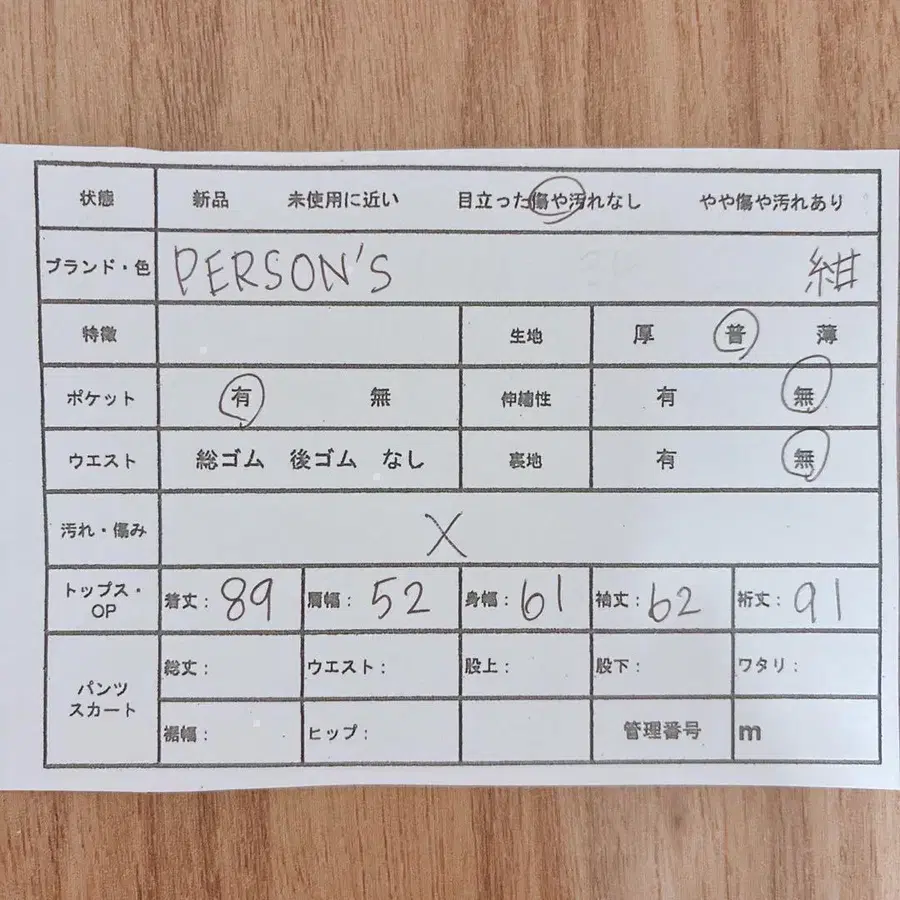 状態 新品 未使用に近い 目立った傷や汚れなし やや傷や汚れあり
ブランド・色 PERSON'S 紺
特徴 生地 厚 普 薄
ポケット 有 無 伸縮性 有 無
ウエスト 総ゴム 後ゴム なし 裏地 有 無
汚れ・傷み X
トップス・OP 着丈: 89 肩幅: 52 身幅: 61 袖丈: 62 裄丈: 91
パンツ スカート 総丈: ウエスト: 股上: 股下: ワタリ:
裾幅: ヒップ: 管理番号 m